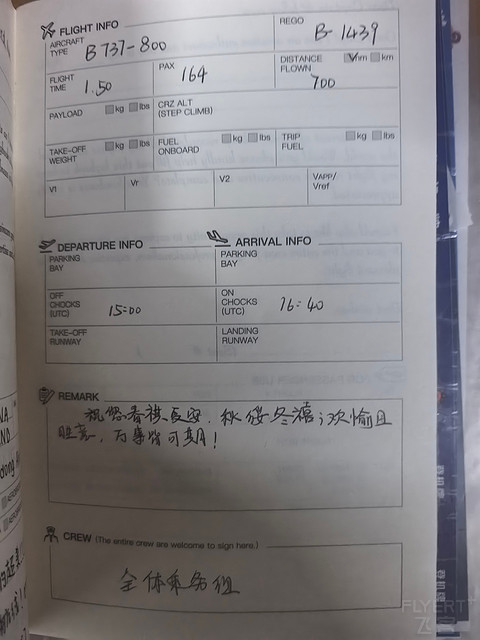 FLIGHT INFO
AIRCRAFT TYPE B737-800
REGO B-1439
FLIGHT TIME 1.50
PAX 164
DISTANCE FLOWN nm km 700
PAYLOAD kg lbs
CRZ ALT (STEP CLIMB)
TAKE-OFF WEIGHT kg lbs
FUEL ONBOARD kg lbs
TRIP FUEL kg lbs
V1
Vr
V2
VAPP/ Vref
DEPARTURE INFO
ARRIVAL INFO
PARKING BAY
PARKING BAY
OFF CHOCKS (UTC) 15:00
ON CHOCKS (UTC) 16:40
TAKE-OFF RUNWAY
LANDING RUNWAY
REMARK
祝您春祺夏安,秋绥冬禧;欢愉且
胜意,万事皆可期!
CREW (The entire crew are welcome to sign here.)
全体乘务组
FLYERT
飞客